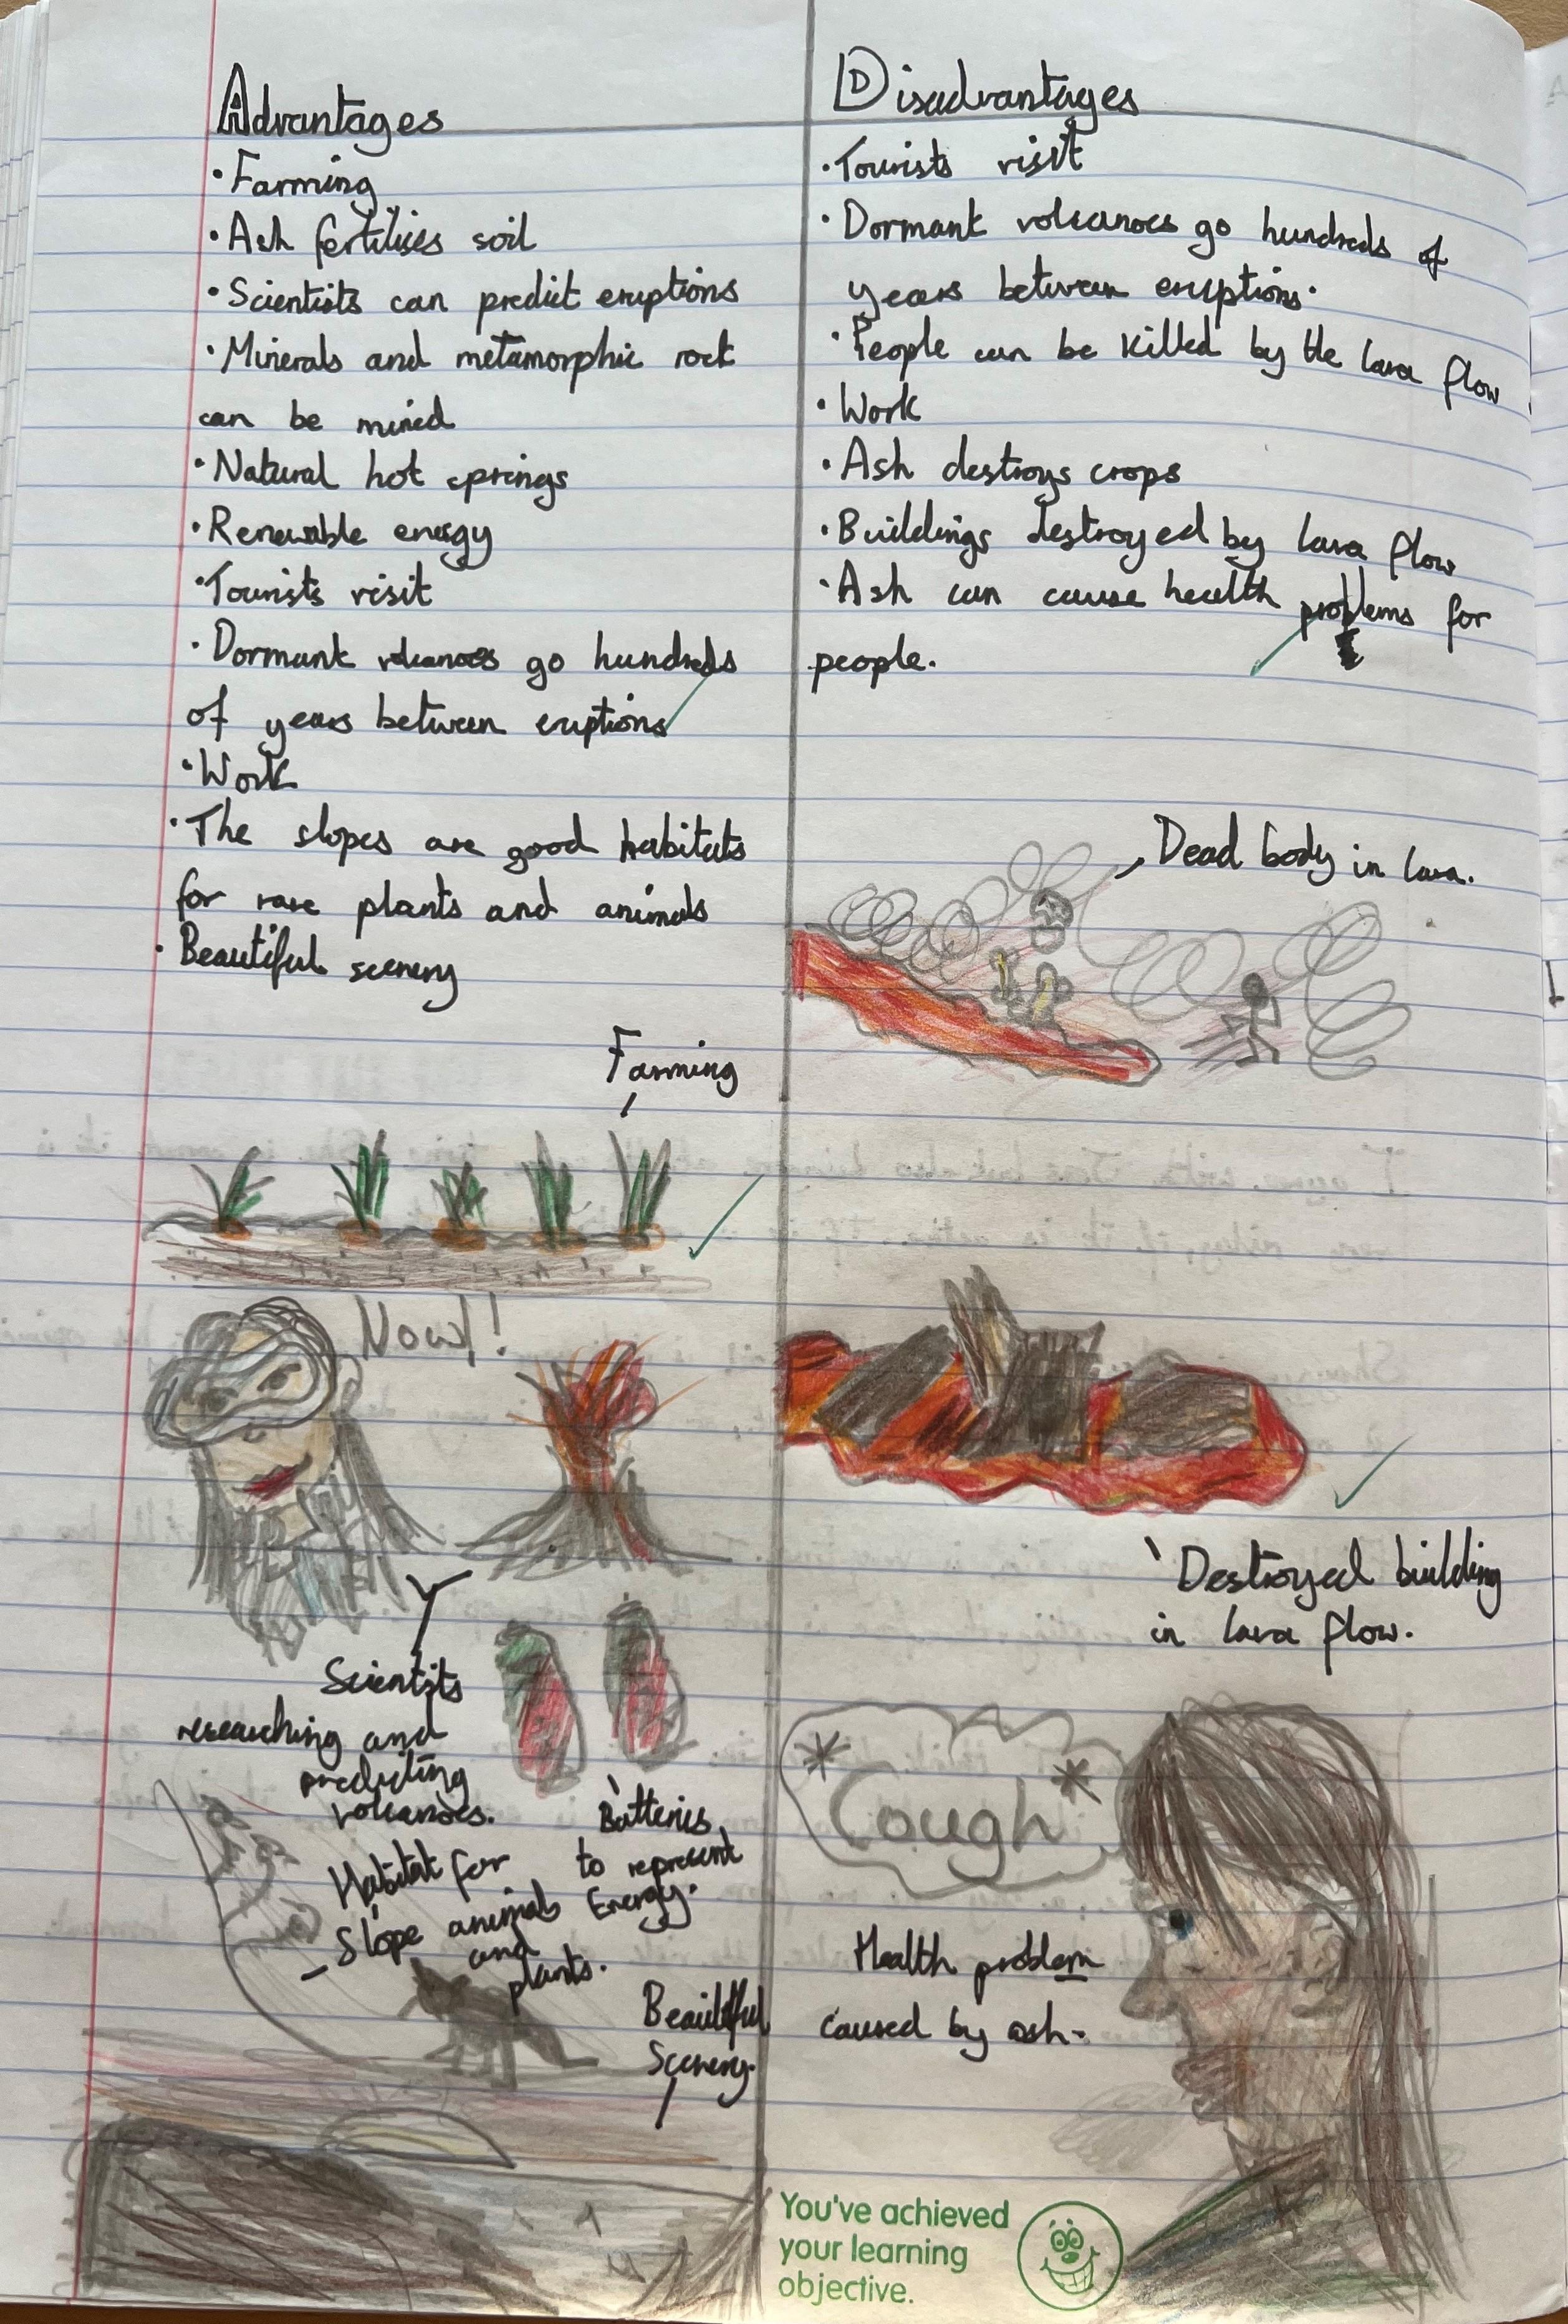 Advantages
·Farming
·Ash fertilises soil
·Scientists can predict eruptions
·Minerals and metamorphic rock
can be mined
·Natural hot springs
·Renewable energy
·Tourists visit
·Dormant volcanoes go hundreds
of years between eruptions
·Work
·The slopes are good habitats
for rare plants and animals
·Beautiful scenery
Farming
Now!
Scientists
researching and
predicting
volcanoes.
Batteries
to represent
Energy.
Habitat for
Slope animals
and
plants.
Beautiful
Scenery.
Disadvantages
·Tourists visit
·Dormant volcanoes go hundreds of
years between eruptions.
·People can be killed by the lava flow
·Work
·Ash destroys crops
·Buildings destroyed by lava flow
·Ash can cause health problems for
people.
Dead body in lava.
Destroyed building
in lava flow.
*Cough*
Health problem
caused by ash.
You've achieved
your learning
objective.